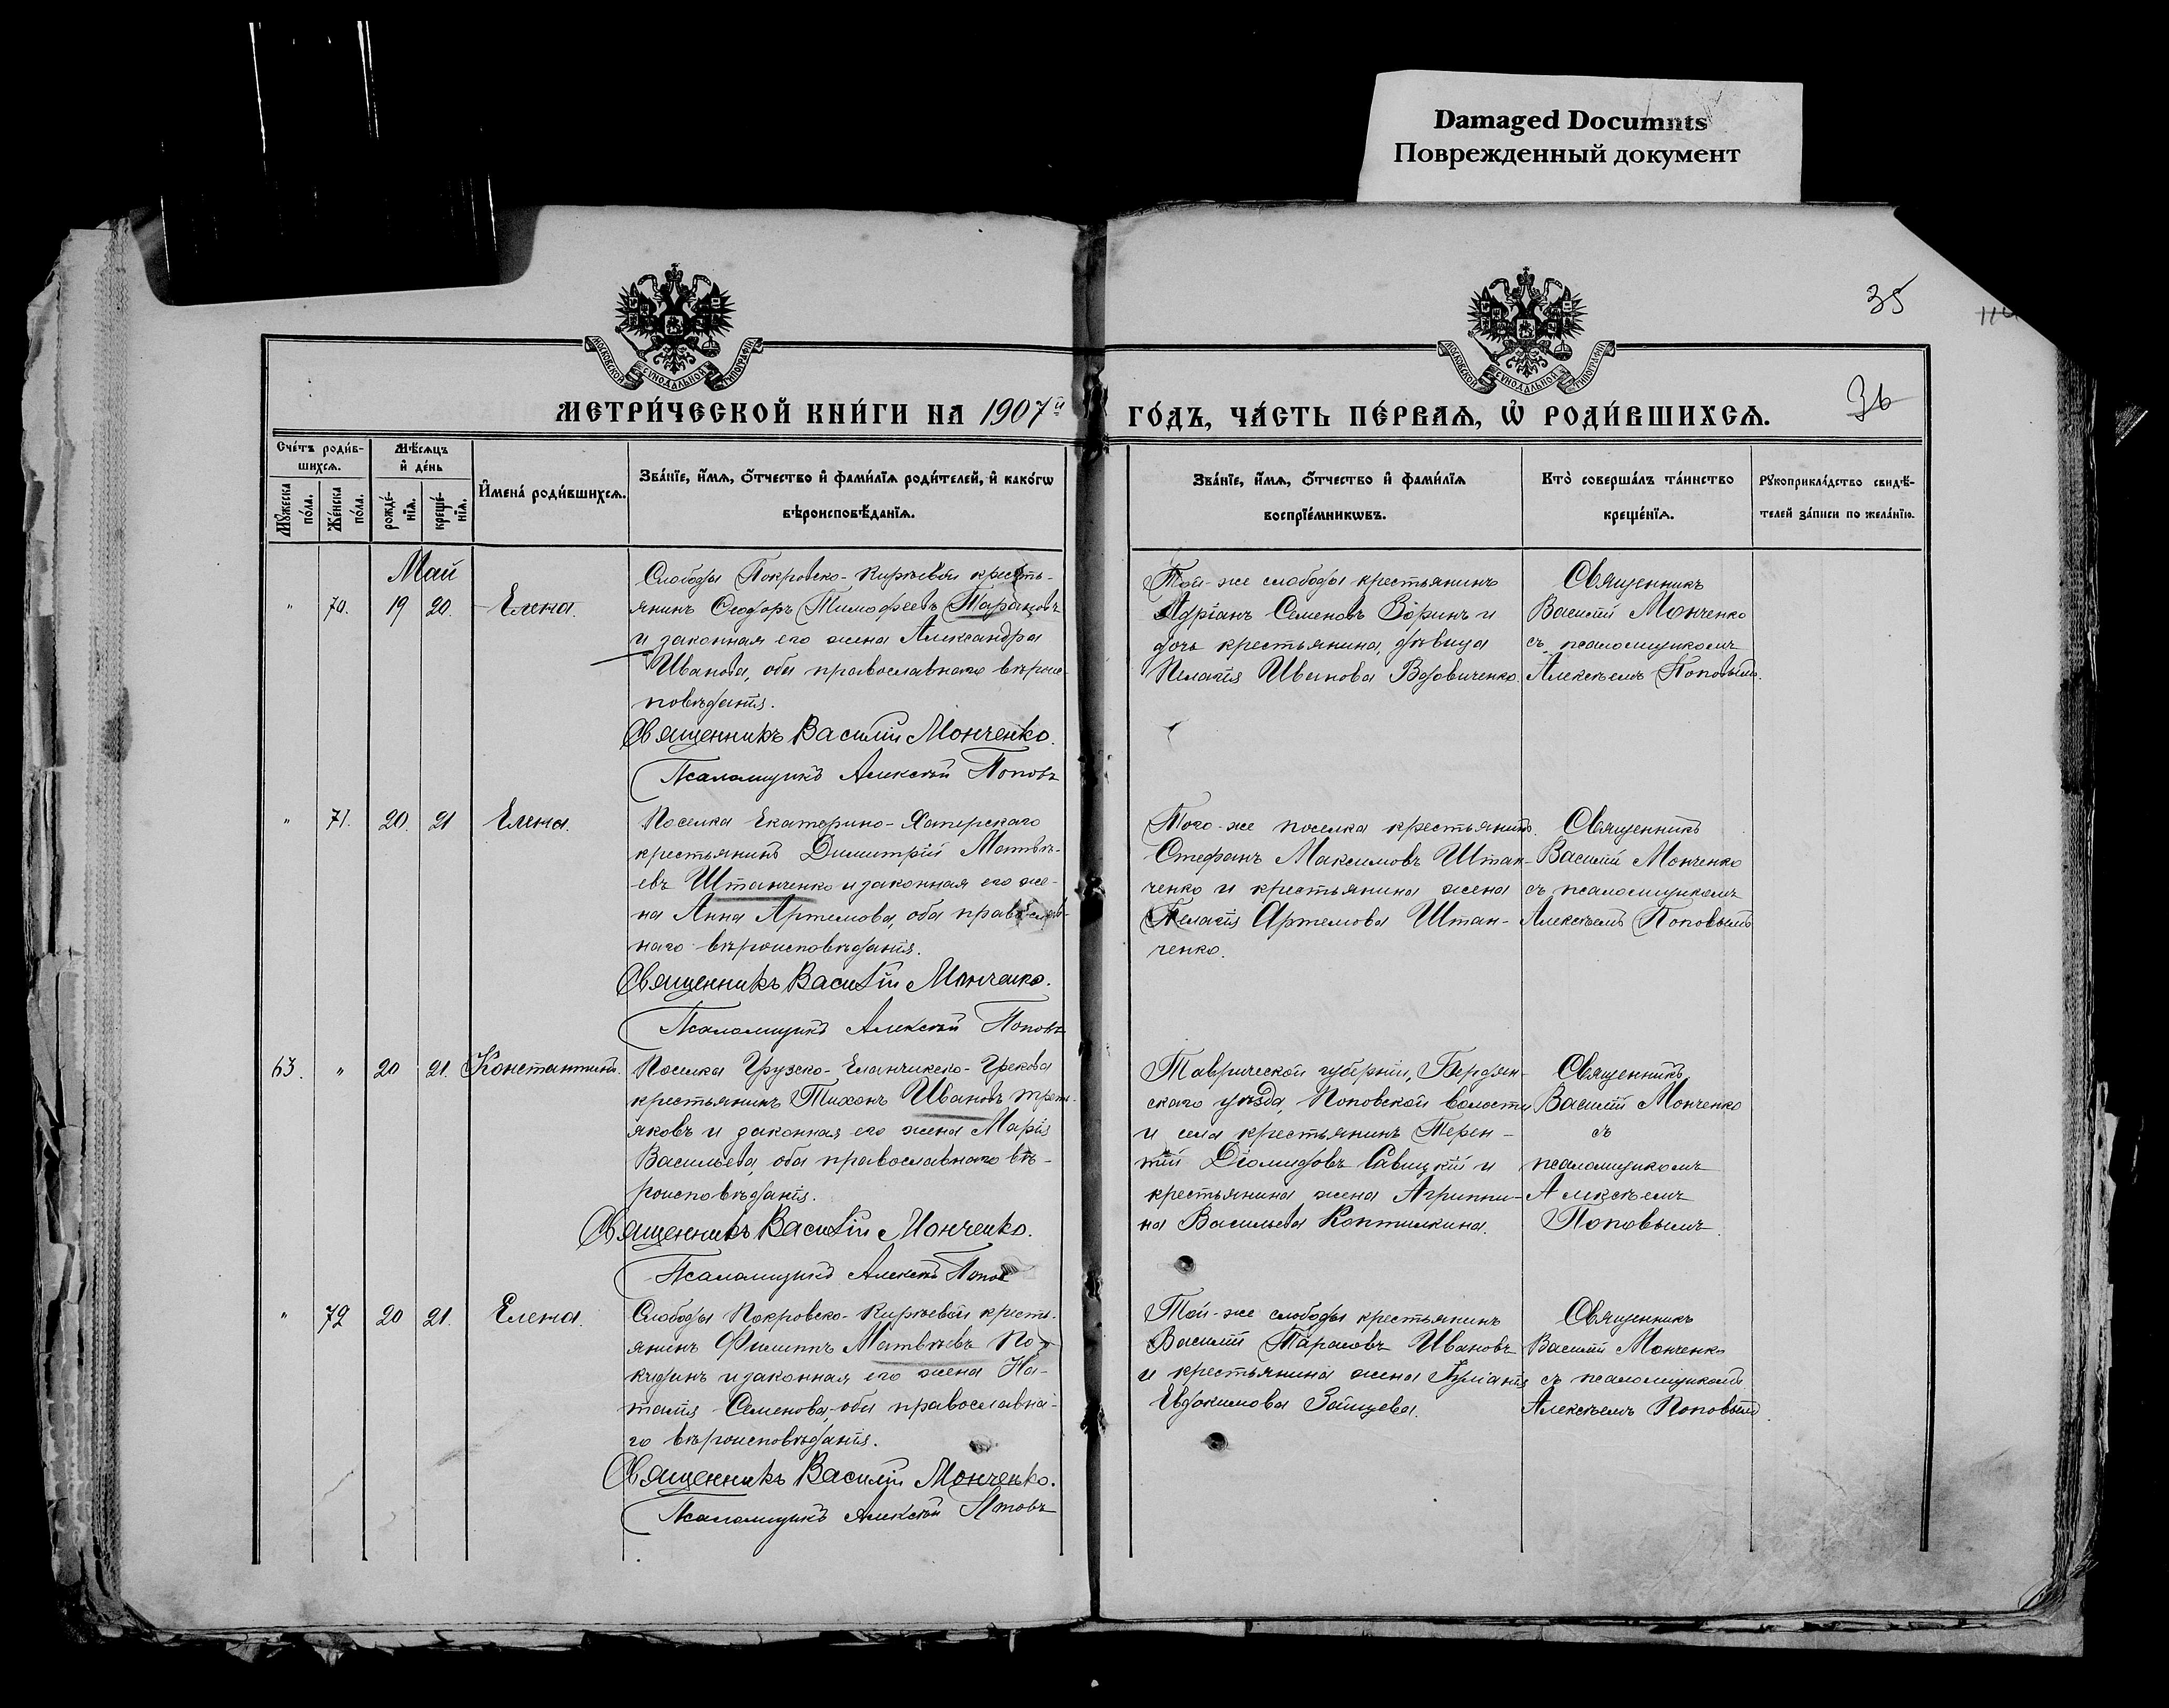 Damaged Documnts
Поврежденный документ
35
36
МОСКОВСКОЙ СѴНОДАЛЬНОЙ ТИПОГРАФІИ
МОСКОВСКОЙ СѴНОДАЛЬНОЙ ТИПОГРАФІИ
МЕТРИ́ЧЕСКОЙ КНИ́ГИ НА 1907й ГО́ДЪ, ЧА́СТЬ ПЕ́РВАѦ, Ѡ҆ РОДИ́ВШИХСѦ.
Сче́тъ роди́в-
шихсѧ.
Мꙋ́жеска
по́ла.
Же́нска
по́ла.
Мѣ́сѧцъ
и҆ де́нь
рожде́-
нїѧ.
креще́-
нїѧ.
И҆мена̀ роди́вшихсѧ.
Зва́нїе, и҆́мѧ, ѻ҆́тчество и҆ фами́лїѧ роди́телей, и҆ како́гѡ
вѣроисповѣ́данїѧ.
Зва́нїе, и҆́мѧ, ѻ҆́тчество и҆ фами́лїѧ
воспрїе́мникѡвъ.
Кто̀ соверша́лъ та́инство
креще́нїѧ.
Рꙋкоприкла́дство свидѣ́-
телей за́писи по жела́нїю.
Май
" 70. 19 20. Елена.
Слободы Покровско-Кирѣевой кресть-
янинъ Сидоръ Тимофеевъ Тарановъ
и законная его жена Александра
Иванова, оба православнаго вѣроис-
повѣданія.
Священникъ Василій Монченко.
Псаломщикъ Алексѣй Поповъ
Той-же слободы крестьянинъ
Адріанъ Семеновъ Зоринъ и
дочь крестьянина, дѣвица
Пелагія Иванова Вдовиченко.
Священникъ
Василій Монченко
съ псаломщикомъ
Алексѣемъ Поповымъ.
" 71. 20. 21 Елена.
Поселка Екатерино-Хаперскаго
крестьянинъ Димитрій Матвѣ-
евъ Штанченко и законная его же-
на Анна Артемова, оба православ-
наго вѣроисповѣданія.
Священникъ Василій Монченко.
Псаломщикъ Алексѣй Поповъ
Того-же поселка крестьянинъ
Стефанъ Максимовъ Штан-
ченко и крестьянина жена
Пелагія Артемова Штан-
ченко.
Священникъ
Василій Монченко
съ псаломщикомъ
Алексѣемъ Поповымъ
63. " 20 21. Константинъ.
Поселка Грузско-Еланчикско-Грекова
крестьянинъ Тихонъ Ивановъ Треть-
яковъ и законная его жена Марія
Васильева, оба православнаго вѣ-
роисповѣданія.
Священникъ Василій Монченко.
Псаломщикъ Алексѣй Попов
Таврической губерніи, Бердян-
скаго уѣзда, Поповской волости
и села крестьянинъ Терен-
тій Діомидовъ Савицкій и
крестьянина жена Агриппи-
на Васильева Коптилкина.
Священникъ
Василій Монченко
съ
псаломщикомъ
Алексѣемъ
Поповымъ
" 72 20 21. Елена.
Слободы Покровско-Кирѣевой кресть-
янинъ Филиппъ Матвѣевъ По-
кидинъ и законная его жена На-
талія Семенова, оба православна-
го вѣроисповѣданія.
Священникъ Василій Монченко.
Псаломщикъ Алексѣй Поповъ
Той-же слободы крестьянинъ
Василій Тарасовъ Ивановъ
и крестьянина жена Іуліанія
Евдокимова Зайцева.
Священникъ
Василій Монченко
съ псаломщикомъ
Алексѣемъ Поповымъ.